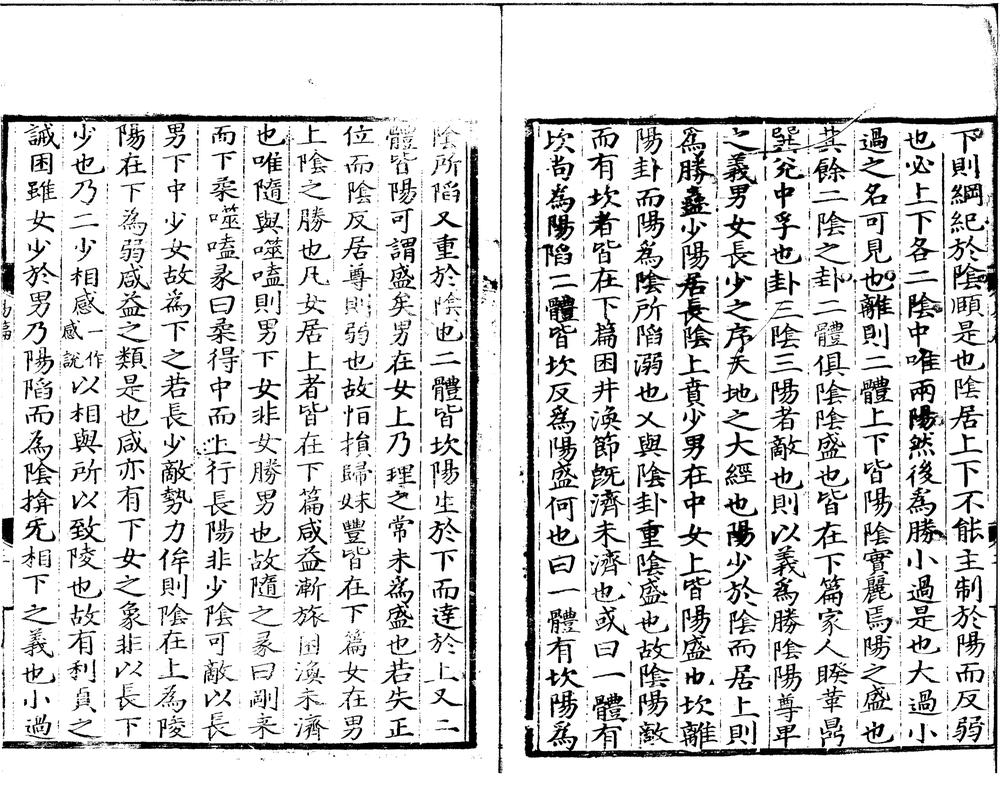 下則綱紀於陰頤是也陰居上下不能主制於陽而反弱
也必上下各二陰中唯兩陽然後為勝小過是也大過小
過之名可見也離則二體上下皆陽陰實麗焉陽之盛也
其餘二陰之卦二體俱陰陰盛也皆在下篇家人睽革鼎
巽兌中孚也卦三陰三陽者敵也則以義為勝陰陽尊卑
之義男女長少之序天地之大經也陽少於陰而居上則
為勝蠱少陽居長陰上賁少男在中女上皆陽盛也坎離
陽卦而陽為陰所陷溺也又與陰卦重陰盛也故陰陽敵
而有坎者皆在下篇困井渙節既濟未濟也或曰一體有
坎尚為陽陷二體皆坎反為陽盛何也曰一體有坎陽為
陰所陷又重於陰也二體皆坎陽生於下而達於上又二
體皆陽可謂盛矣男在女上乃理之常未為盛也若失正
位而陰反居尊則弱也故恒損歸妹豐皆在下篇女在男
上陰之勝也凡女居上者皆在下篇咸益漸旅困渙未濟
也唯隨與噬嗑則男下女非女勝男也故隨之彖曰剛來
而下柔噬嗑彖曰柔得中而上行長陽非少陰可敵以長
男下中少女故為下之若長少敵勢力侔則陰在上為陵
陽在下為弱咸益之類是也咸亦有下女之象非以長下
少也乃二少相感一作感說以相與所以致陵也故有利貞之
誡困雖女少於男乃陽陷而為陰揜无相下之義也小過